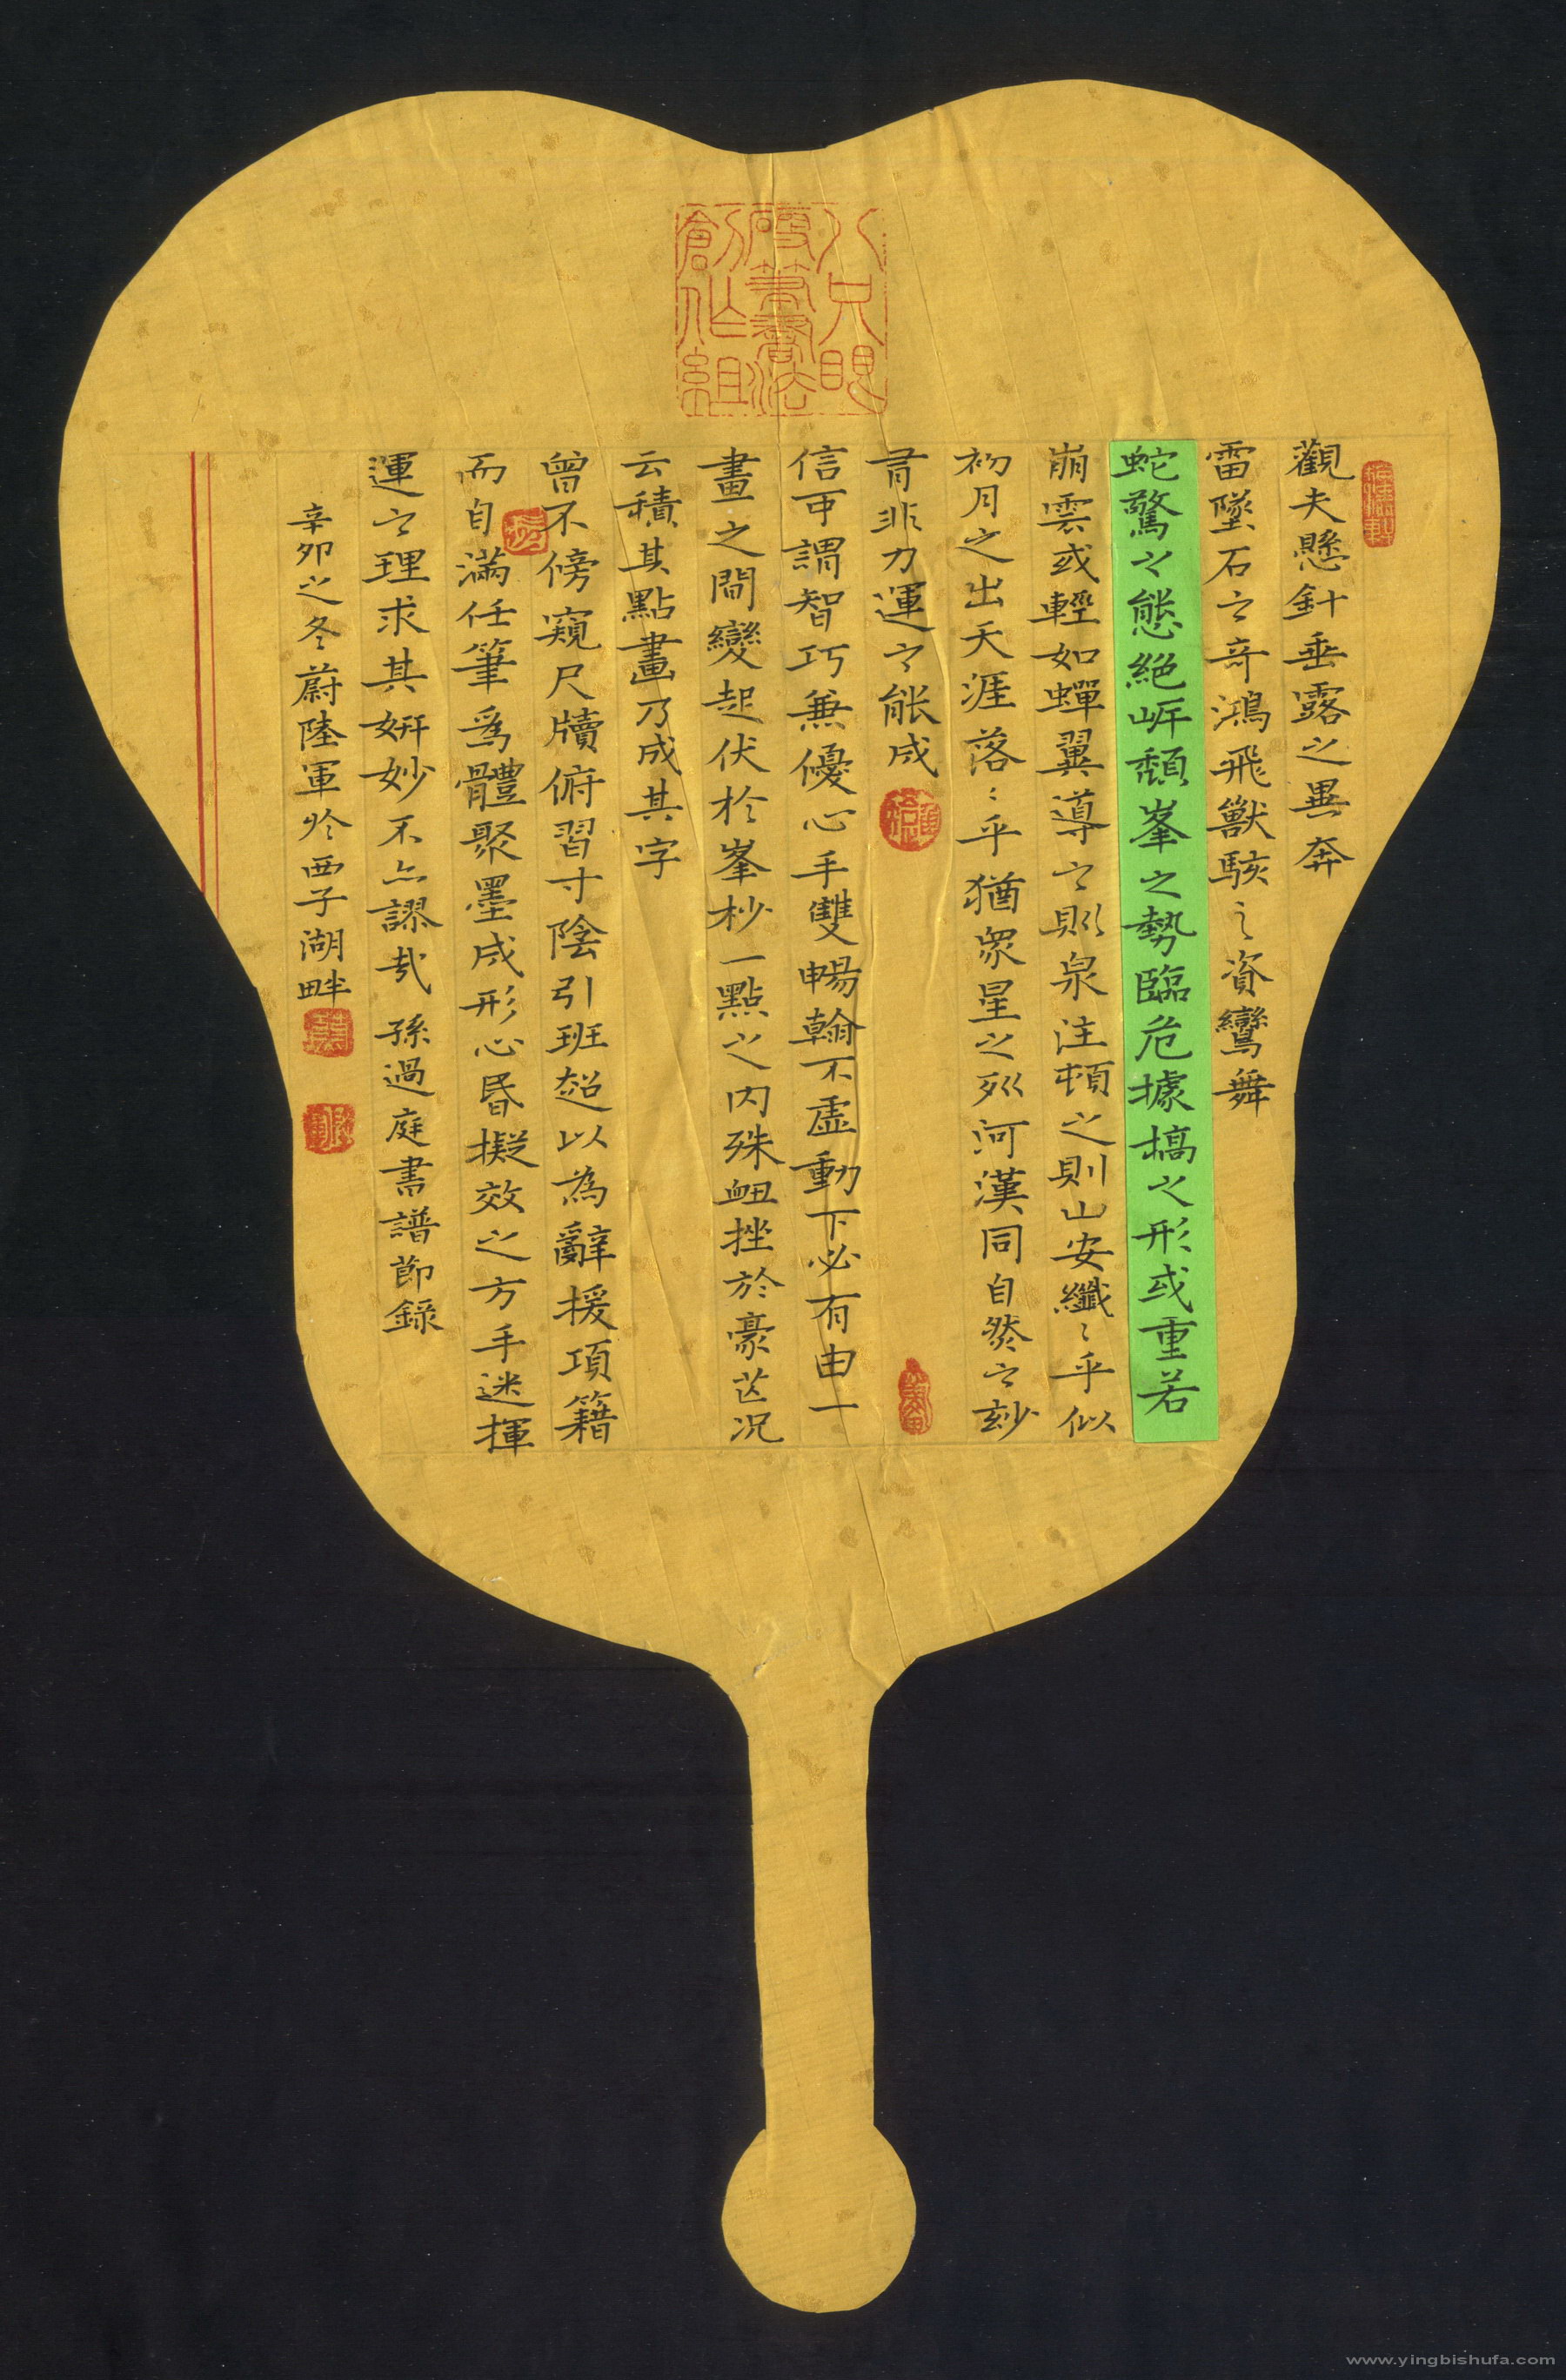 八只眼
硬筆書法
創作組
觀夫懸針垂露之異奔
雷墜石之奇鴻飛獸駭之資鸞舞
蛇驚之態絕岸頹峯之勢臨危據槁之形或重若
崩雲或輕如蟬翼導之則泉注頓之則山安纖〻乎似
初月之出天涯落〻乎猶眾星之列河漢同自然之妙
有非力運之能成
信可謂智巧兼優心手雙暢翰不虛動下必有由一
畫之間變起伏於峯杪一點之內殊衄挫於豪芒况
云積其點畫乃成其字
曾不傍窺尺牘俯習寸陰引班超以為辭援項籍
而自滿任筆為體聚墨成形心昏擬效之方手迷揮
運之理求其妍妙不亦謬哉 孫過庭書譜節錄
辛卯之冬蔚陸軍於西子湖畔
www.yingbishufa.com